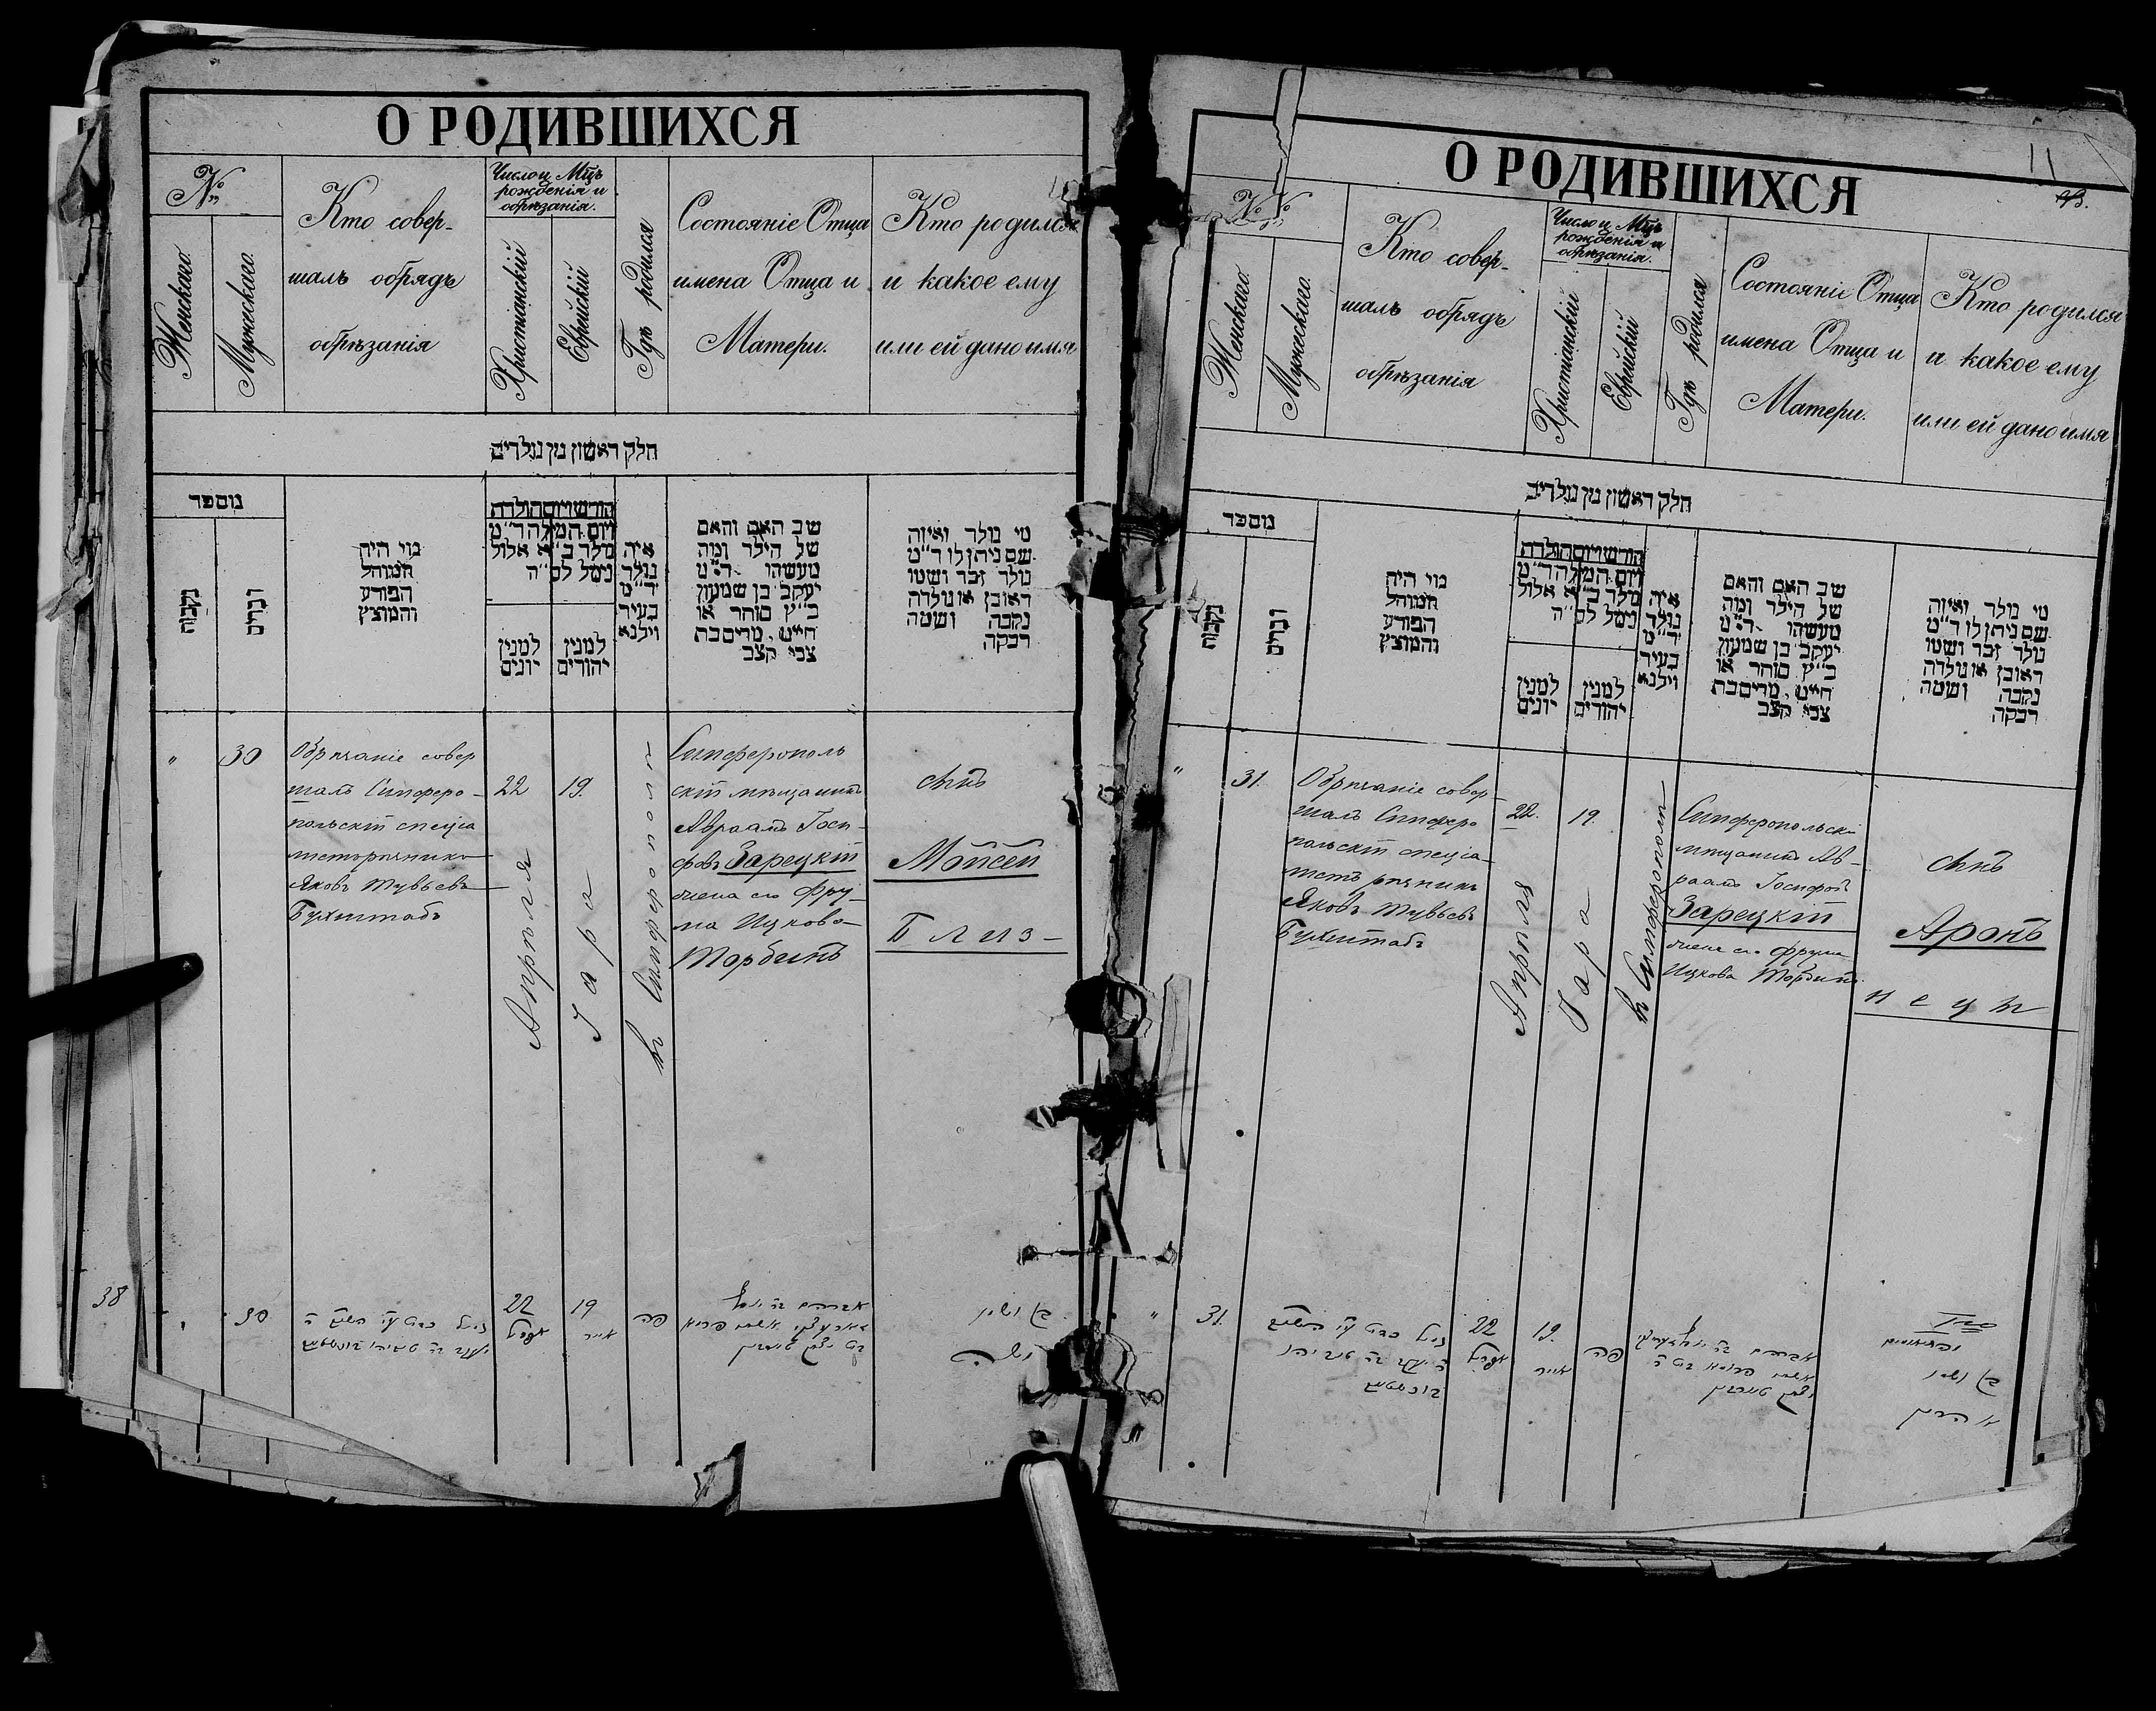 О РОДИВШИХСЯ
№
Женскаго.
Мужескаго.
Кто совер-
шалъ обрядъ
обрѣзанія
Число и Мцъ
рожденія и
обрѣзанія.
Христіанскій
Еврейскій
Гдѣ родился
Состояніе Отца
имена Отца и
Матери.
Кто родился
и какое ему
или ей дано имя
חלק ראשון מן נולדים
מספר
נקבות
זכרים
מי היה
המוהל
הפורע
והמוצץ
חודש ויום הולדת
ויום המילה ד״מ
נולד ב״א אלול
נימל לס״ה
למנין
יונים
למנין
יהודים
איה
נולד
ד״מ
בעיר
וילנא
שב האם והאם
של הילד ומה
מעשהו ד״מ
יעקב בן שמעון
כ״ץ סוחר או
חייט, מרים בת
צבי קצב
מי נולד ואיזה
שם ניתן לו ד״מ
נולד זכר ושמו
ראובן או נולדה
נקבה ושמה
רבקה
"
30
Обрѣзаніе совер
шалъ Симферо-
польскій спеціа
листъ рѣзникъ
Яковъ Тувьевъ
Бухштабъ
22
Апрѣля
19.
Іара
въ Симферополѣ
Симферополь
скій мѣщанинъ
Авраамъ Іоси-
фовъ Зарецкій
жена его Фру-
ма Ицкова
Торбинъ
сынъ
Мойсей
Близ-
38
30
22
אפריל
19
אייר
פה
בן ושמו
משה
О РОДИВШИХСЯ
11
№ №
Женскаго.
Мужескаго.
Кто совер-
шалъ обрядъ
обрѣзанія
Число и Мцъ
рожденія и
обрѣзанія.
Христіанскій
Еврейскій
Гдѣ родился
Состояніе Отца
имена Отца и
Матери.
Кто родился
и какое ему
или ей дано имя
חלק ראשון מן נולדים
מספר
נקבות
זכרים
מי היה
המוהל
הפורע
והמוצץ
חודש ויום הולדת
ויום המילה ד״מ
נולד ב״א אלול
נימל לס״ה
למנין
יונים
למנין
יהודים
איה
נולד
ד״מ
בעיר
וילנא
שב האם והאם
של הילד ומה
מעשהו ד״מ
יעקב בן שמעון
כ״ץ סוחר או
חייט, מרים בת
צבי קצב
מי נולד ואיזה
שם ניתן לו ד״מ
נולד זכר ושמו
ראובן או נולדה
נקבה ושמה
רבקה
"
31.
Обрѣзаніе совер-
шалъ Симферо
польскій спеціа-
листъ рѣзникъ
Яковъ Тувьевъ
Бухштабъ
22.
Апрѣля
19.
Іара
въ Симферополѣ
Симферопольскі
мѣщанинъ Ав-
раамъ Іосифовъ
Зарецкій
жена его Фрума
Ицкова Торбинъ
сынъ
Аронъ
нецы
"
31.
22
אפריל
19.
אייר
פה
בן ושמו
אהרן